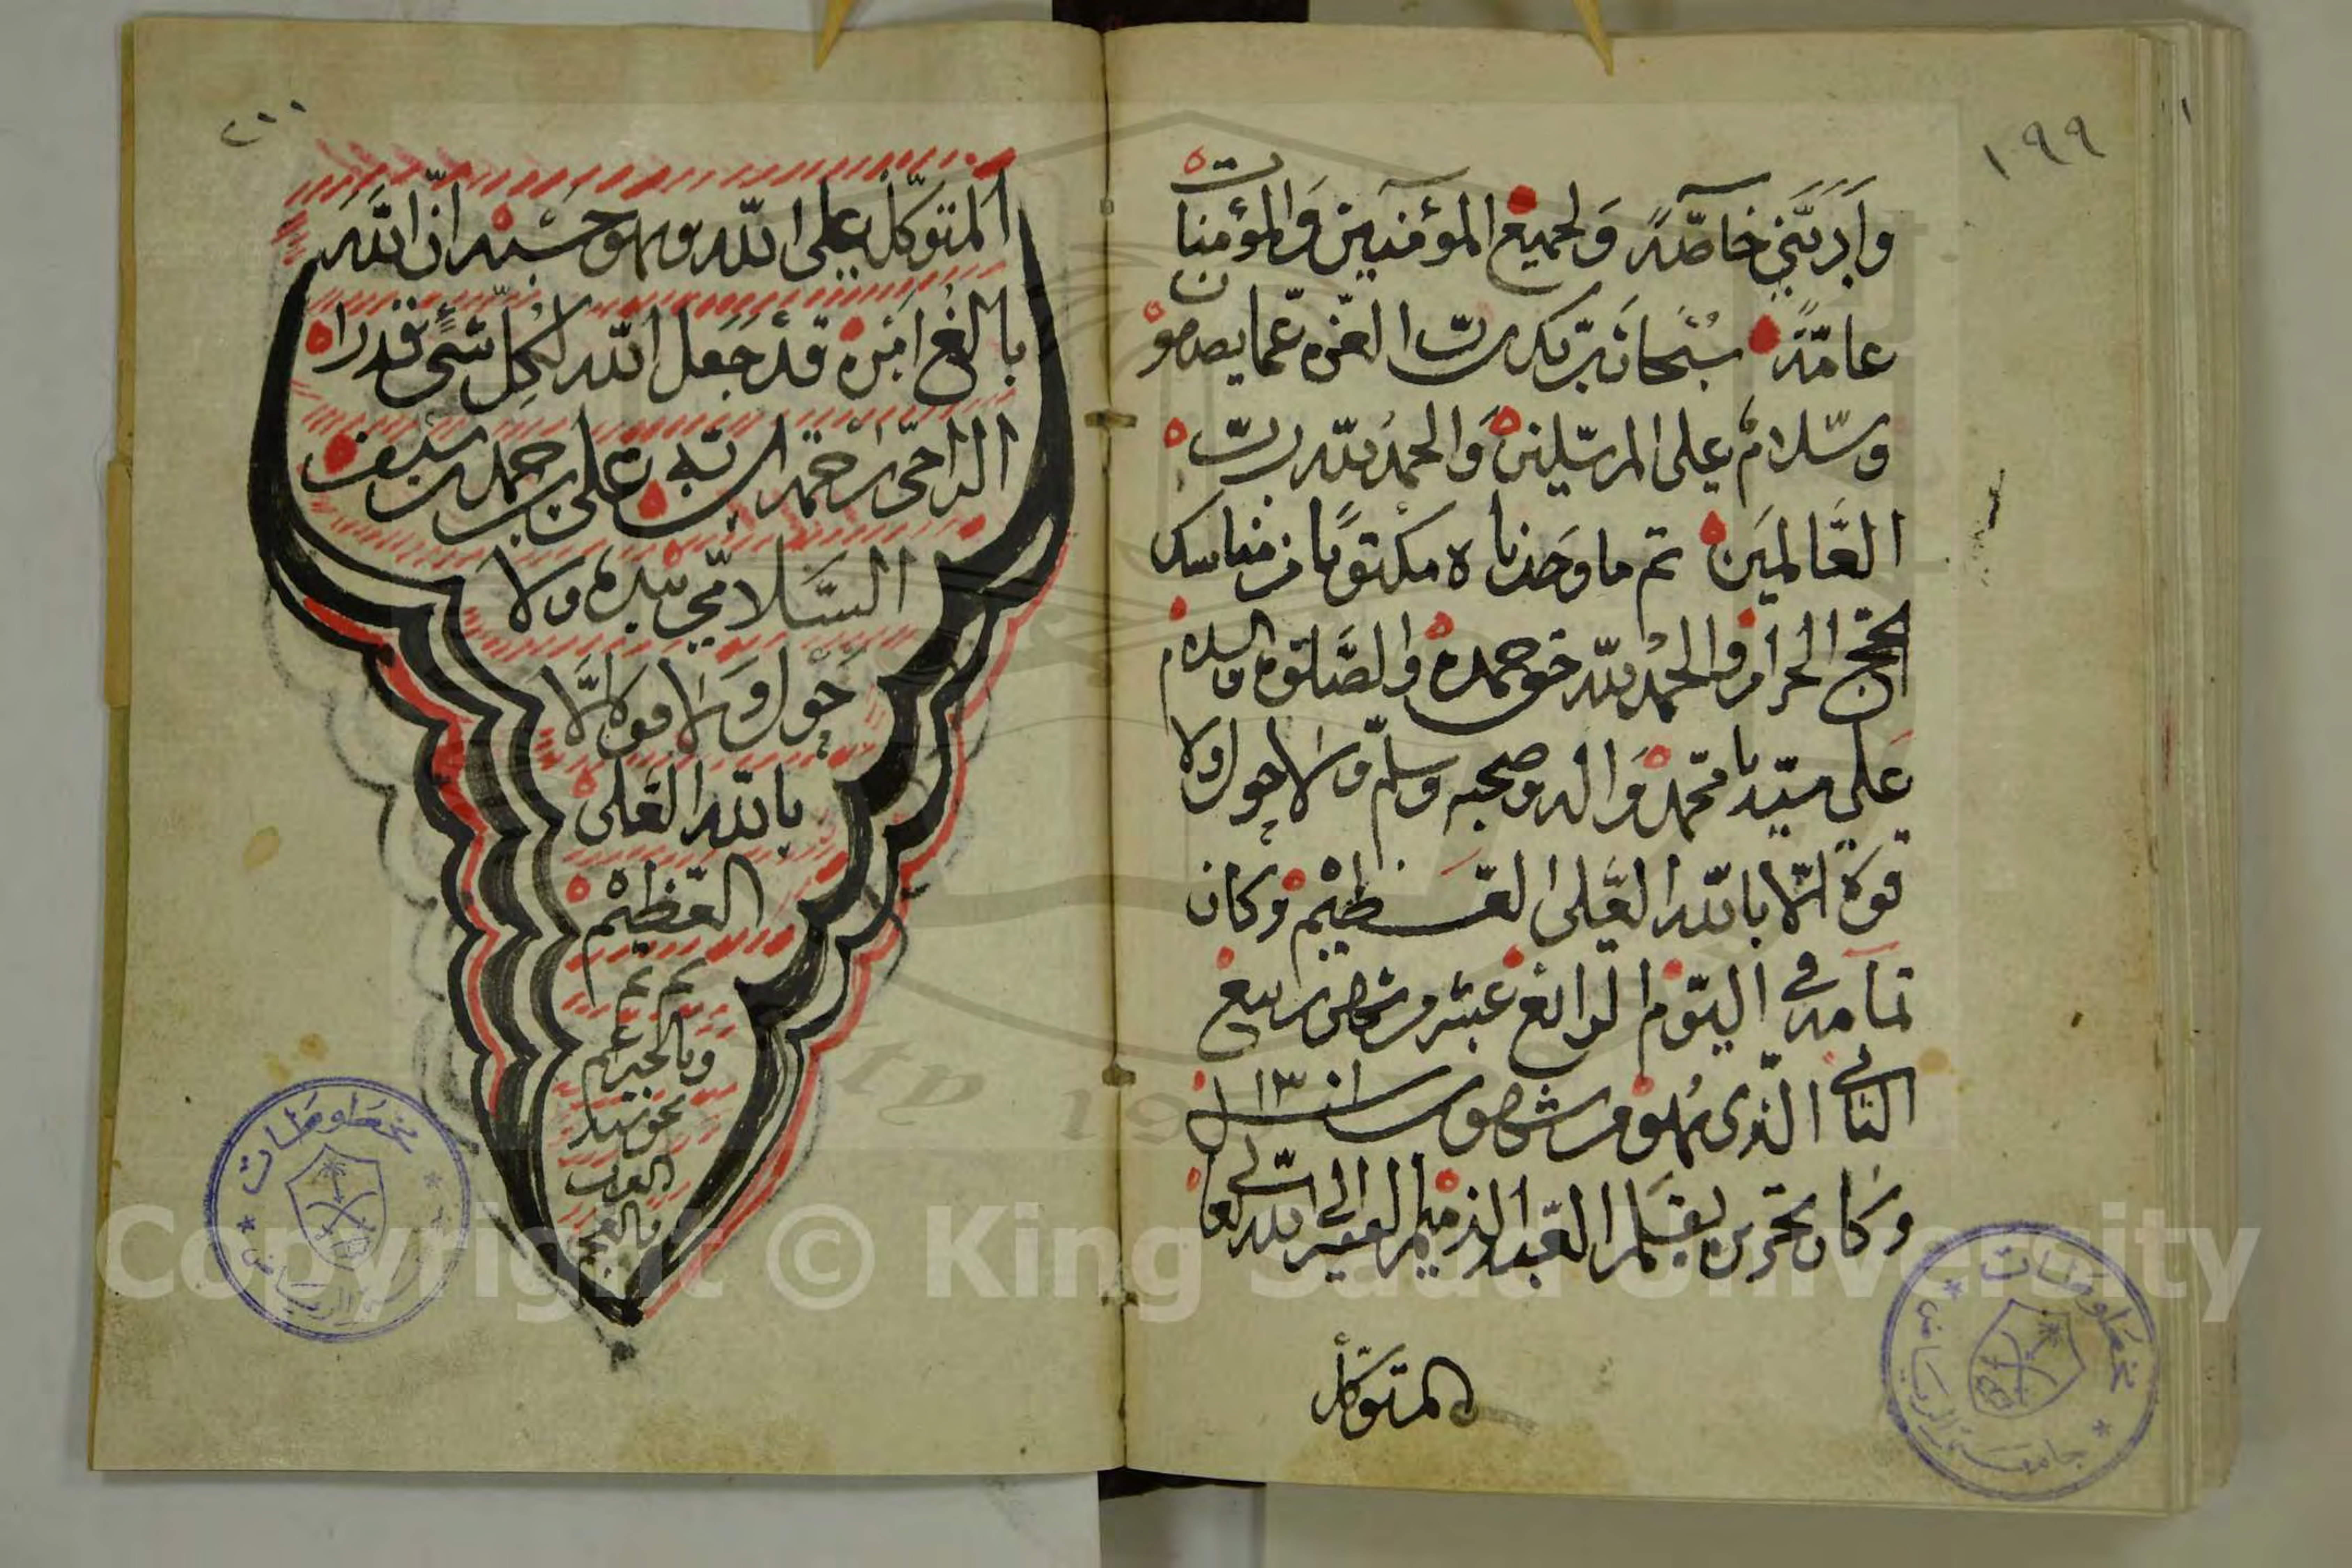 ١٩٩
وَاَدِيَّتي خاصّةً وَلجميع المؤمنين وَالمؤمنات
عامّةً سبحان ربّك ربّ العزّه عمّا يصفون
وسّلامٌ على المرسلين وَالحمدُ للّه ربّ
العَالمين تم ما وجدناه مكتوبًا من مناسك
الحج الحرام والحمد للّه حق حمده والصّلوة والسلام
على سيّدنا محمّد وَاله وصحبه وسلّم ولا حول ولا
قوة الّا باللّه العَلى العَظيْم وكان
تمامه في اليوم الرابع عشر من شهر ربيع
الثاني الّذي هُو من شهور سنة ١٣١١
وكان تحريره بقلم العَبد الذميم الفقير الى اللّه تعالى
المتوكل
٢٠٠
اَلمتوكّل على اللّه وهو حسْبُه انّ اللّهَ
بالغُ امْرِه قدْ جَعل اللّه لكُلِّ شئٍ قدرا
الراجى رحمة ربّه على بن حمد بن سيف
السَّلامّي بيده ولا
حَوْل ولا قوة الَّا
باللّه العَلى
العَظيْم
تم تم
وبالخير عم
مخطوطات
جامعة الرياض
مخطوطات
جامعة الرياض
Copyright © King Saud University